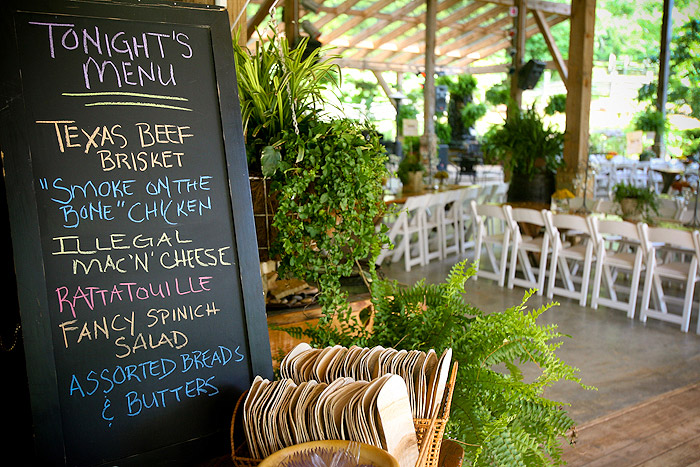 TONIGHT'S
MENU
TEXAS BEEF
BRISKET
"SMOKE ON THE
BONE" CHYKEN
ILLEGAL
MAC 'N' CHEESE
RATTATOUILLE
FANCY SPINICH
SALAD
ASSORTED BREADS
& BUTTERS